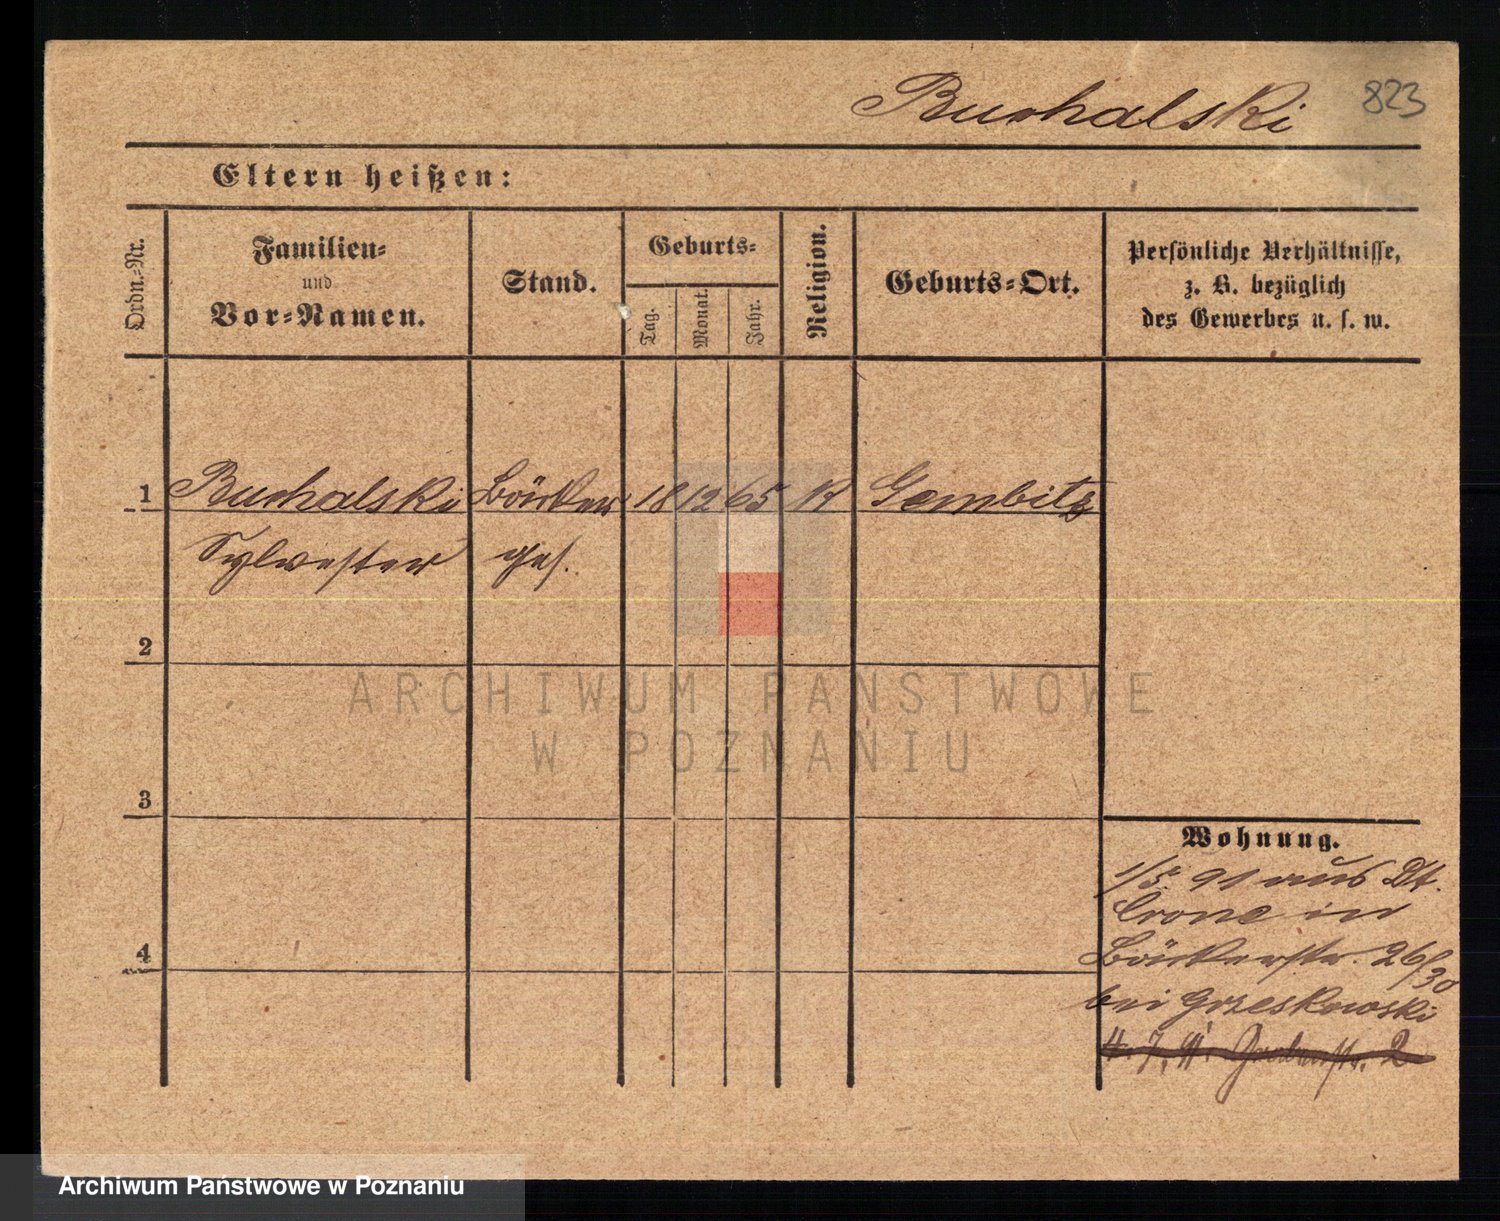 Buchalski 823
Eltern heißen:
Ordn.-Nr. Familien- und Vor-Namen. Stand. Geburts- Tag. Monat. Jahr. Religion. Geburts-Ort. Persönliche Verhältnisse, z. B. bezüglich des Gewerbes u. s. w.
1 Buchalski Bäcker 18 12 65 K Gembitz
Sylvester ges.
2
3
4
Wohnung.
1/5 91 aus Dt.
Crone in
Bäckerstr. 26/30
bei Grzeskowski
2
ARCHIWUM PAŃSTWOWE
W POZNANIU
Archiwum Państwowe w Poznaniu